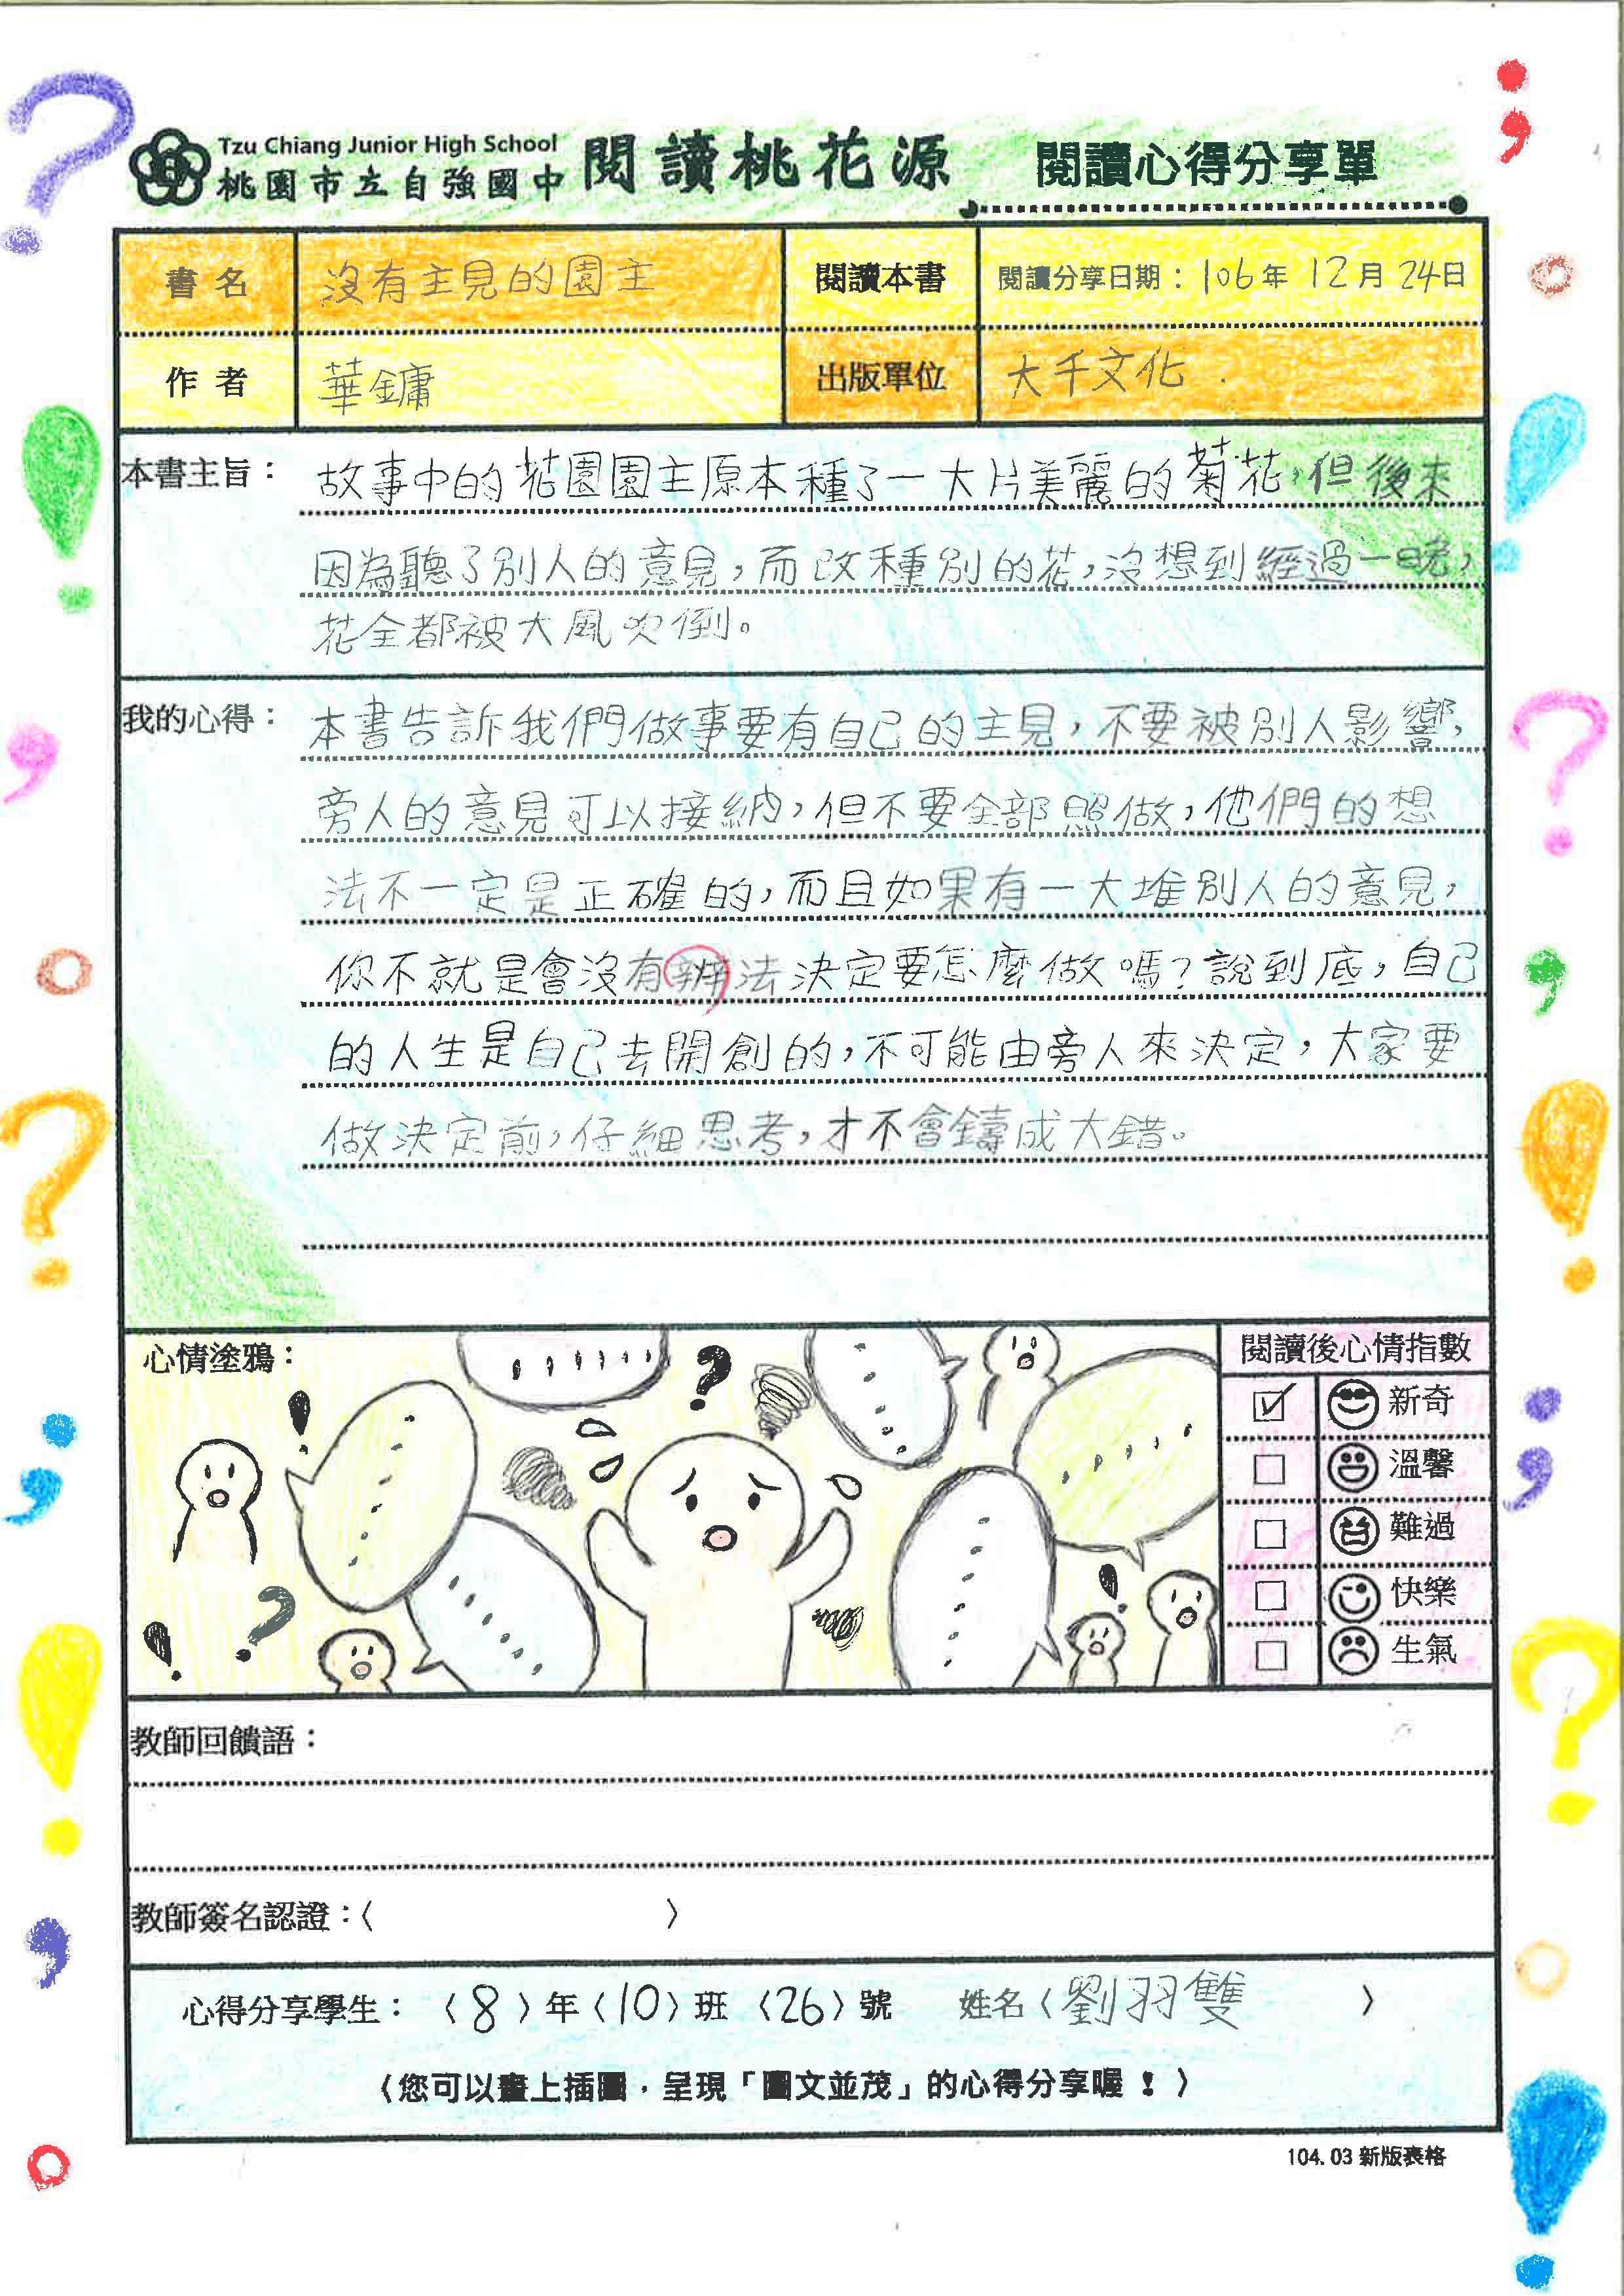 Tzu Chiang Junior High School
桃園市立自強國中 閱讀桃花源 閱讀心得分享單
書名 沒有主見的園主 閱讀本書 閱讀分享日期：106年 12月 24日
作者 華鏞 出版單位 大千文化.
本書主旨： 故事中的花園園主原本種了一大片美麗的菊花，但後來
因為聽了別人的意見，而改種別的花，沒想到經過一晚，
花全都被大風吹倒。
我的心得： 本書告訴我們做事要有自己的主見，不要被別人影響，
旁人的意見可以接納，但不要全部照做，他們的想
法不一定是正確的，而且如果有一大堆別人的意見，
你不就是會沒有辦法決定要怎麼做嗎？說到底，自己
的人生是自己去開創的，不可能由旁人來決定，大家要
做決定前，仔細思考，才不會鑄成大錯。
心情塗鴉：
閱讀後心情指數
新奇
溫馨
難過
快樂
生氣
教師回饋語：
教師簽名認證：〈 〉
心得分享學生：〈8〉年〈10〉班〈26〉號 姓名〈劉羽雙 〉
〈您可以畫上插圖，呈現「圖文並茂」的心得分享喔！〉
104.03 新版表格